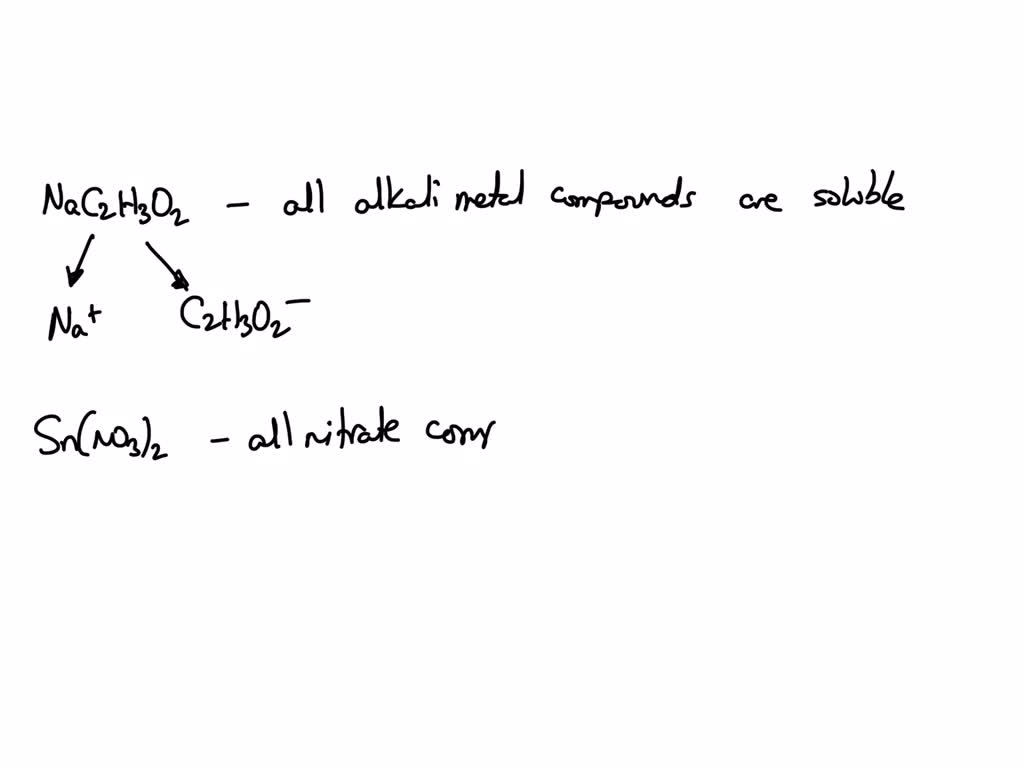 NaC2H3O2 - all alkali metal compounds are soluble
Na+ C2H3O2-
Sn(NO3)2 - all nitrate com